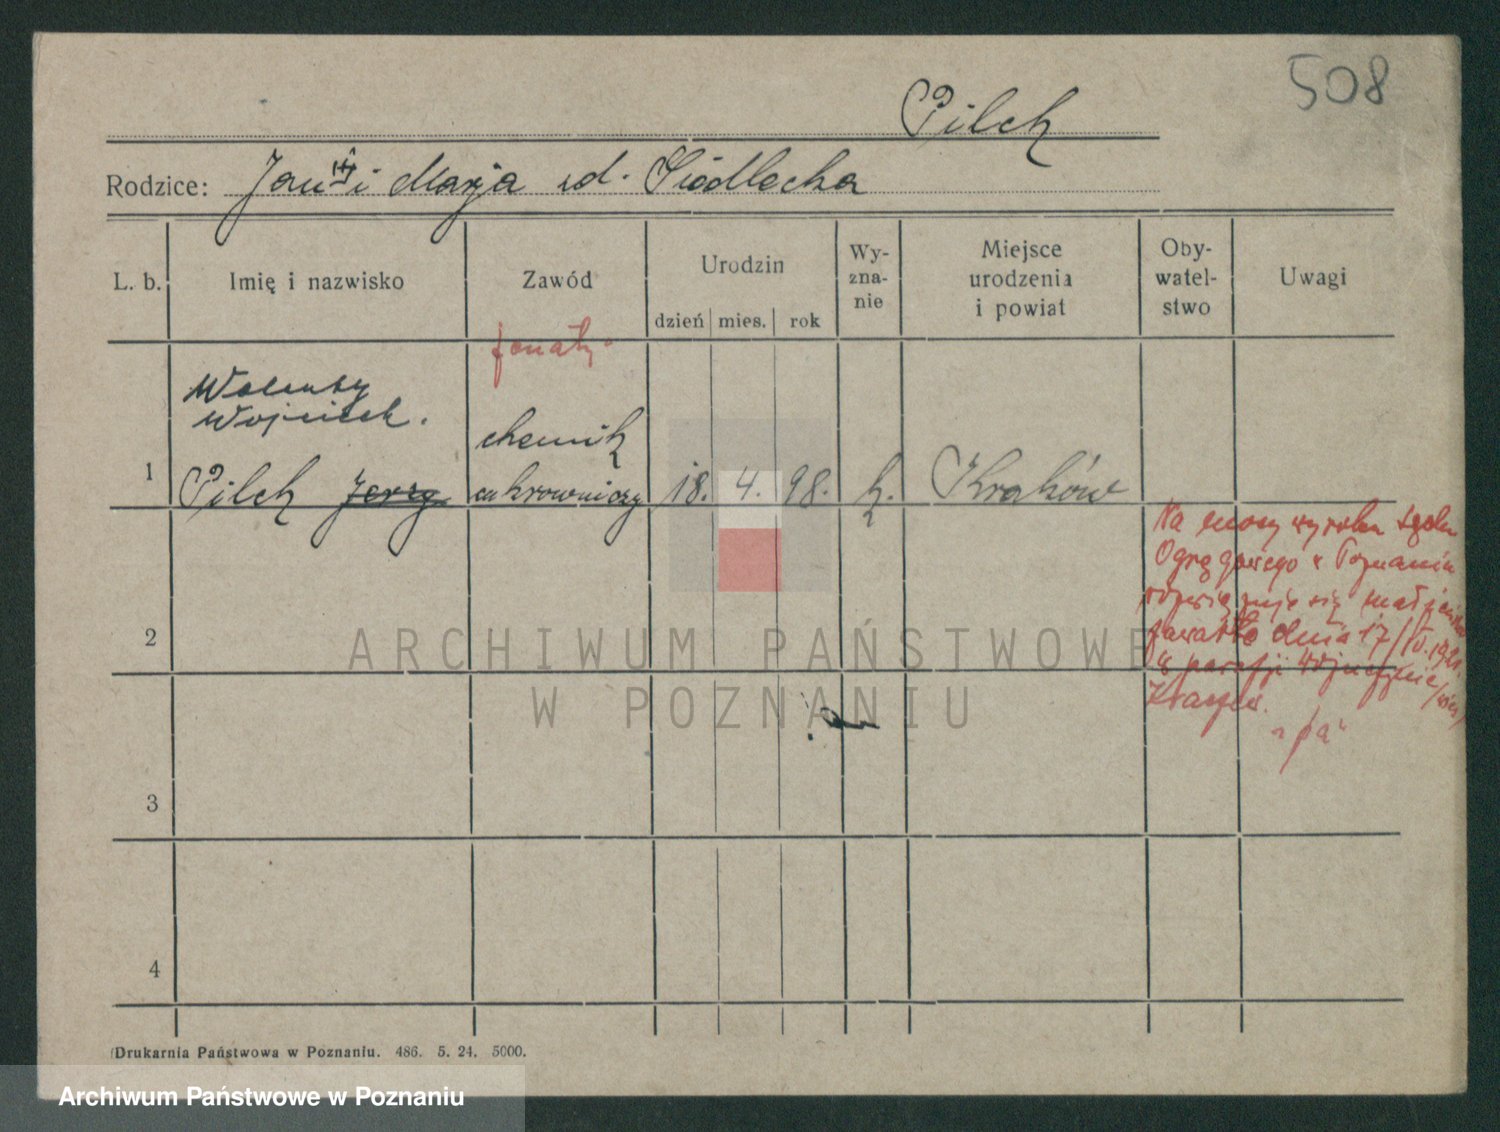 508
Pilch
Rodzice: Jan i Marja zd. Siodlecka
L. b.
Imię i nazwisko
Zawód
Urodzin
dzień mies. rok
Wy-
zna-
nie
Miejsce
urodzenia
i powiat
Oby-
watel-
stwo
Uwagi
żonaty
Walenty
Wojciech.
1
Pilch Jerzy
chemik
cukrowniczy
18. 4. 98.
k.
Kraków
Na mocy wyroku Sądu
Okręgowego w Poznaniu
rozwiązuje się
zawarte dnia 17/
w parafji
2
3
4
ARCHIWUM PAŃSTWOWE
W POZNANIU
Drukarnia Państwowa w Poznaniu. 486. 5. 24. 5000.
Archiwum Państwowe w Poznaniu